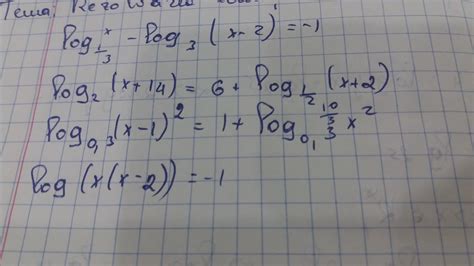 Тема:
log_{1/3} x - log_3 (x-2) = -1
log_2 (x+14) = 6 + log_{1/2} (x+2)
log_{0,3} (x-1)^2 = 1 + log_{0,3} \frac{10}{3} x^2
log (x(x-2)) = -1